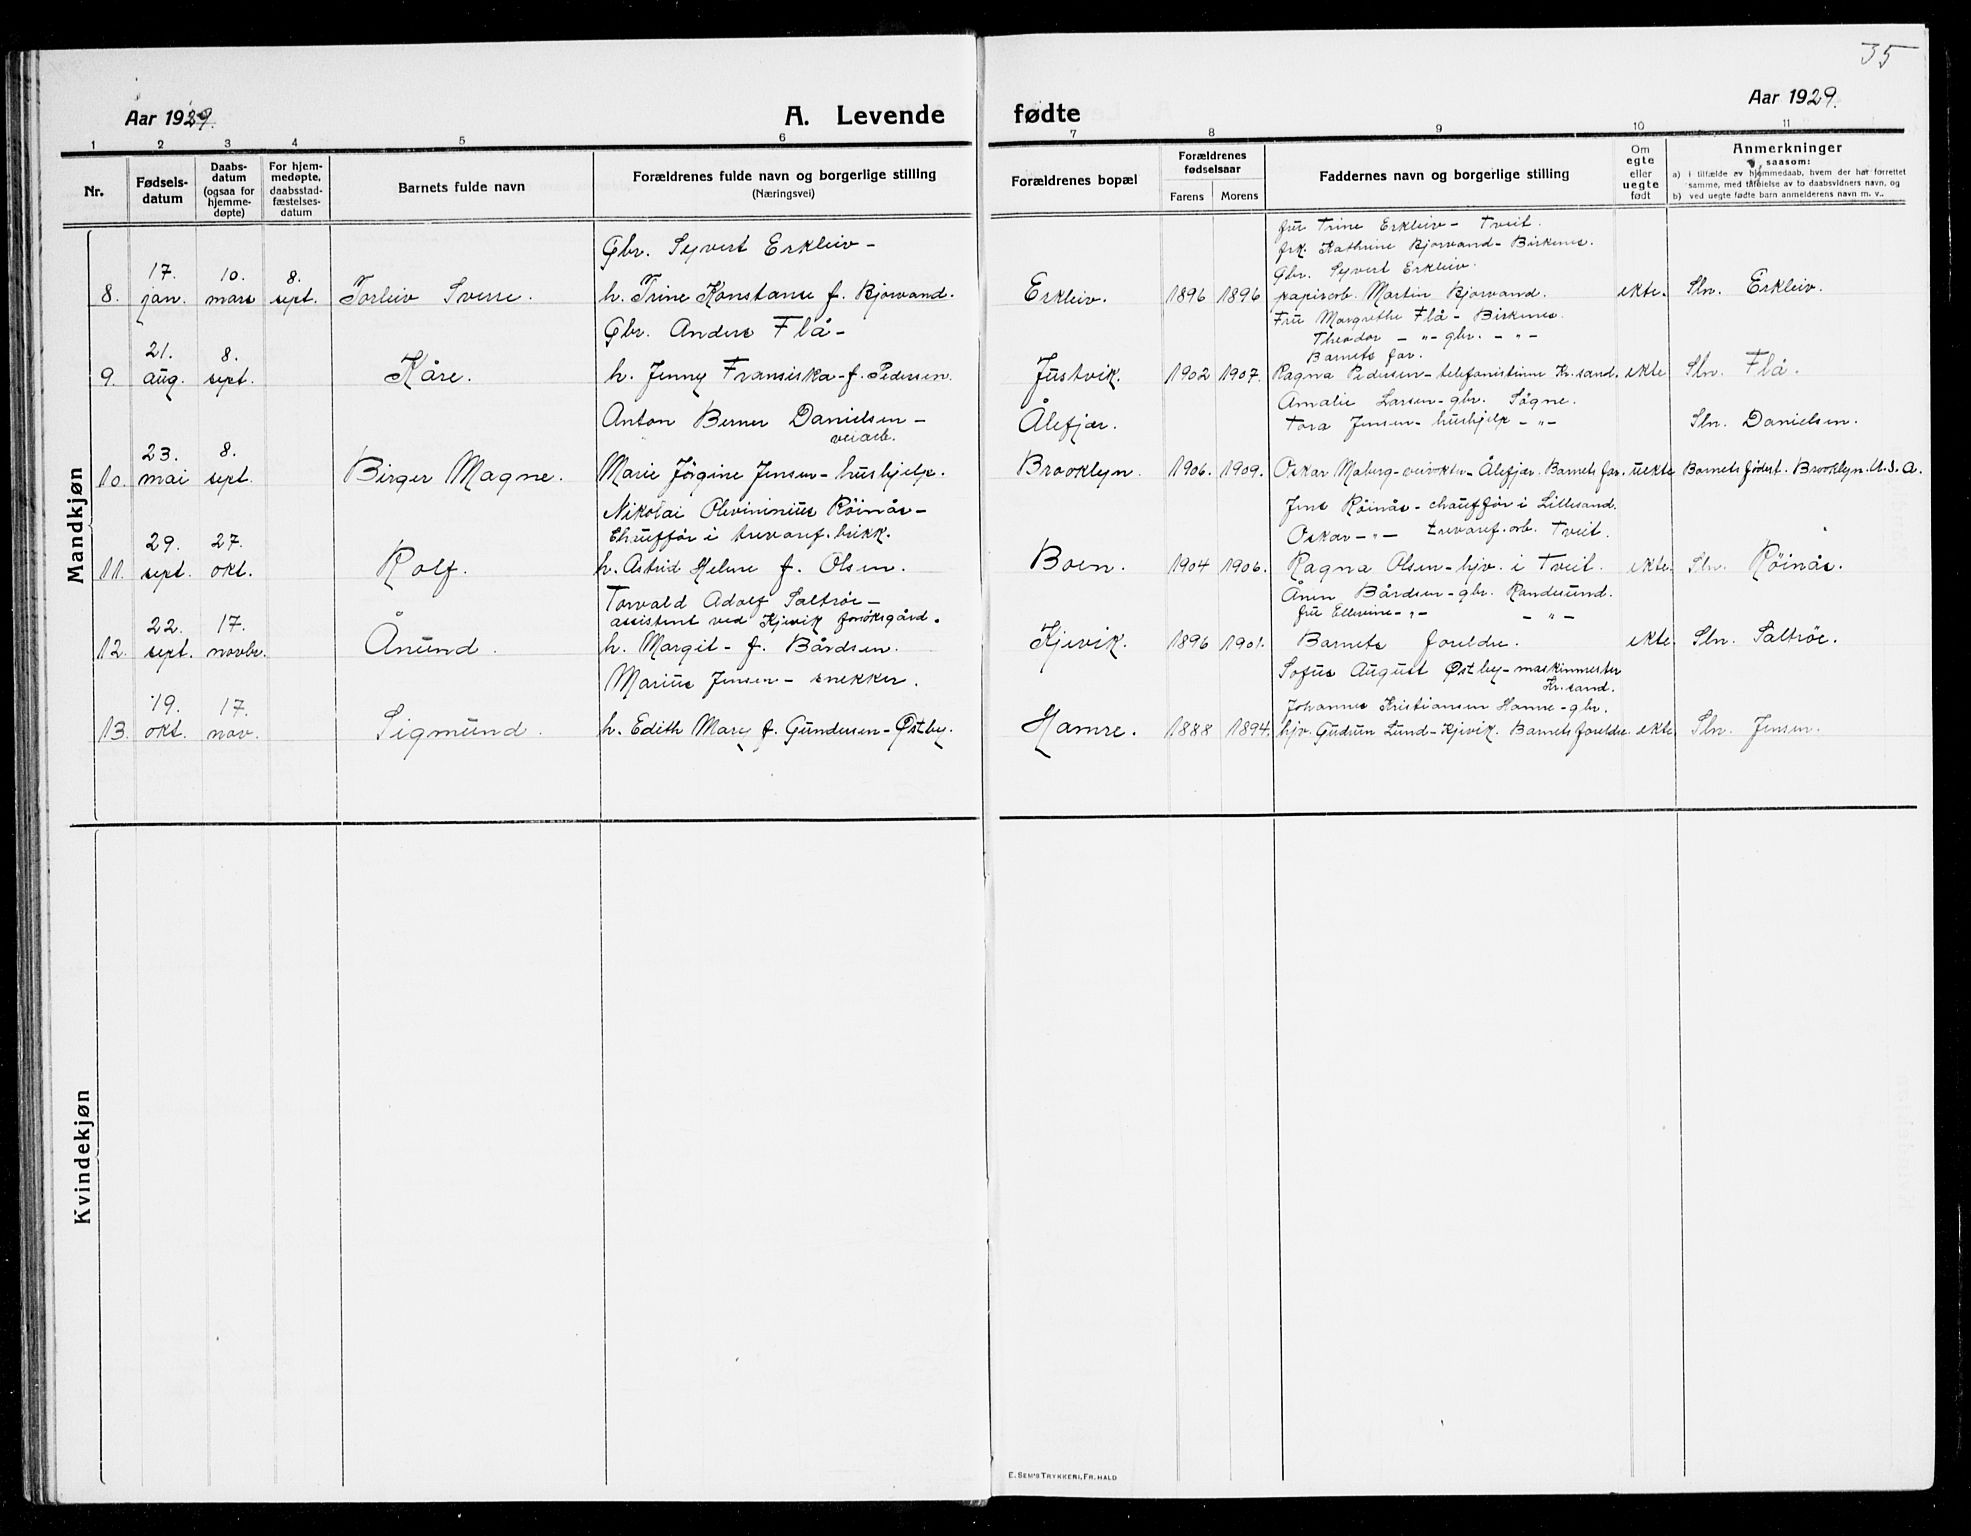 35
Aar 1929.
A. Levende
fødte
Aar 1929.
1 2 3 4 5 6 7 8 9 10 11
Nr.
Fødsels-
datum
Daabs-
datum
(ogsaa for
hjemme-
døpte)
For hjem-
medøpte,
daabsstad-
fæstelses-
datum
Barnets fulde navn
Forældrenes fulde navn og borgerlige stilling
(Næringsvei)
Forældrenes bopæl
Forældrenes
fødselsaar
Farens Morens
Faddernes navn og borgerlige stilling
Om
egte
eller
uegte
født
Anmerkninger
saasom:
a) i tilfælde av hjemmedaab, hvem der har forrettet
samme, med tilføielse av to daabsvidners navn, og
b) ved uegte fødte barn anmelderens navn m. v..
Mandkjøn
8.
17.
jan.
10.
mars
8.
sept.
Torleiv Sverre.
Gbr. Syvert Erkleiv -
h. Trine Konstanse f. Bjorvand.
Erkleiv.
1896 1896
fru Trine Erkleiv - Tveit.
frk. Kathrine Bjorvand - Birkenes.
Gbr. Syvert Erkleiv.
papirarb. Martin Bjorvand.
ekte.
Sln. Erkleiv.
9.
21.
aug.
8.
sept.
Kåre.
Gbr. Anders Flå -
h. Jenny Fransiska - f. Pedersen.
Justvik.
1902 1907.
Fru Margrethe Flå - Birkenes.
Theodor - " - gbr. - " -
Barnets far.
Ragna Pedersen - telefonistinne Kr.sand.
ekte
Sln. Flå.
10.
23.
mai
8.
sept.
Birger Magne.
Anton Berner Danielsen -
veiarb.
Marie Jörgine Jensen - hushjelp.
Ålefjær.
Brooklyn.
1906. 1909.
Amalie Larsen - gbr. Søgne.
Tora Jensen - hushjelp - " -
Oskar Moberg - Ålefjær. Barnets far.
uekte
Sln. Danielsen.
Barnets fødest. Brooklyn. U.S.A.
11.
29.
sept.
27.
okt.
Rolf.
Nikolai Olevinius Röinås -
Chauffør i trevaref.brikk.
h. Astrid Helene f. Olsen.
Boen.
1904 1906.
Jens Röinås - chauffør i Lillesand.
Oskar - " - trevaref.arb. Tveit.
Ragna Olsen - hjv. i Tveit.
ekte.
Sln. Röinås.
12.
22.
sept.
17.
novbr.
Ånund.
Torvald Adolf Saltröe -
assistent ved Kjevik forsøksgård.
h. Margit - f. Bårdsen.
Kjevik.
1896 1901.
Ånen Bårdsen - gbr. Randesund.
fru Ellevine - " - - " -
Barnets foreldre.
ekte.
Sln. Saltröe.
13.
19.
okt.
17.
nov.
Sigmund.
Marius Jensen - snekker.
h. Edith Mary f. Gundersen - Østby.
Hamre.
1888 1894.
Sofus August Østby - maskinmester
Kr.sand.
Johannes Kristiansen Hamre - gbr.
hjv. Gudrun Lund - Kjevik. Barnets foreldre.
ekte
Sln. Jensen.
Kvindekjøn
E. SEM'S TRYKKERI, FR.HALD